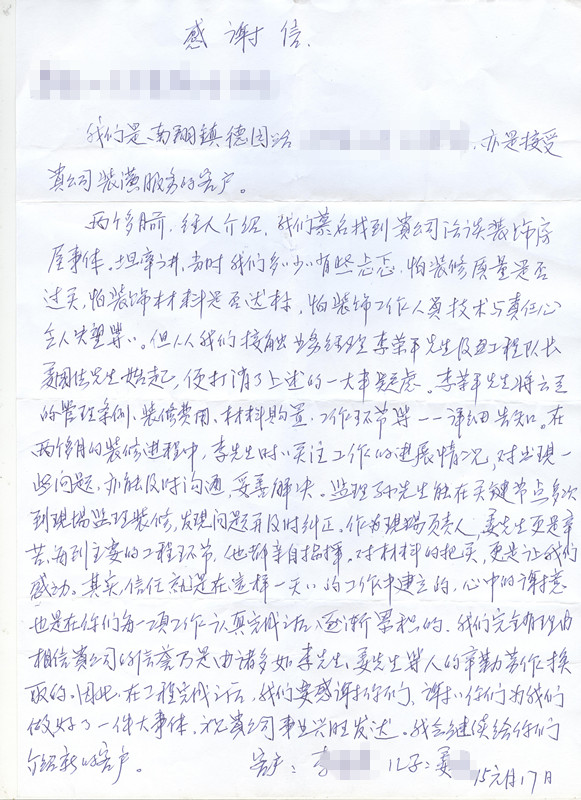 感谢信
我们是南翔鎮德园路 亦是接受
貴公司装潢服务的客户。
两个多月前，经人介绍，我们慕名找到貴公司洽谈装饰房
屋事体。坦率讲，当时我们多少有些忐忑，怕装修质量是否
过关，怕装饰材料是否达标，怕装饰工作人员技术与责任心
令人失望等等。但从我们接触业务经理李荣平先生及工程队长
姜国住先生始起，便打消了上述的一大串疑虑。李荣平先生将公司
的管理条例、装修费用、材料购置、工作环节等一一详细告知。在
两个多月的装修进程中，李先生时时关注工作的进展情况，对出现一
些问题，亦能及时沟通，妥善解决。监理孙先生能在关键节点多次
到现场监理装修，发现问题并及时纠正。作为现场负责人，姜先生更是辛
苦，每到主要的工程环节，他都亲自指挥。对材料的把关，更是让我们
感动。其实，信任就是在这样一天天的工作中建立的，心中的谢意
也是在你们每一项工作认真完成之后，逐渐累积的。我们完全有理由
相信貴公司的信誉乃是由诸多如李先生、姜先生等人的辛勤劳作换
取的。因此，在工程完成之后，我们要感谢你们，谢谢你们为我们
做好了一件大事体，祝貴公司事业兴旺发达。我会继续给你们
介绍新的客户。
客户：李 儿子：姜
15元月17日